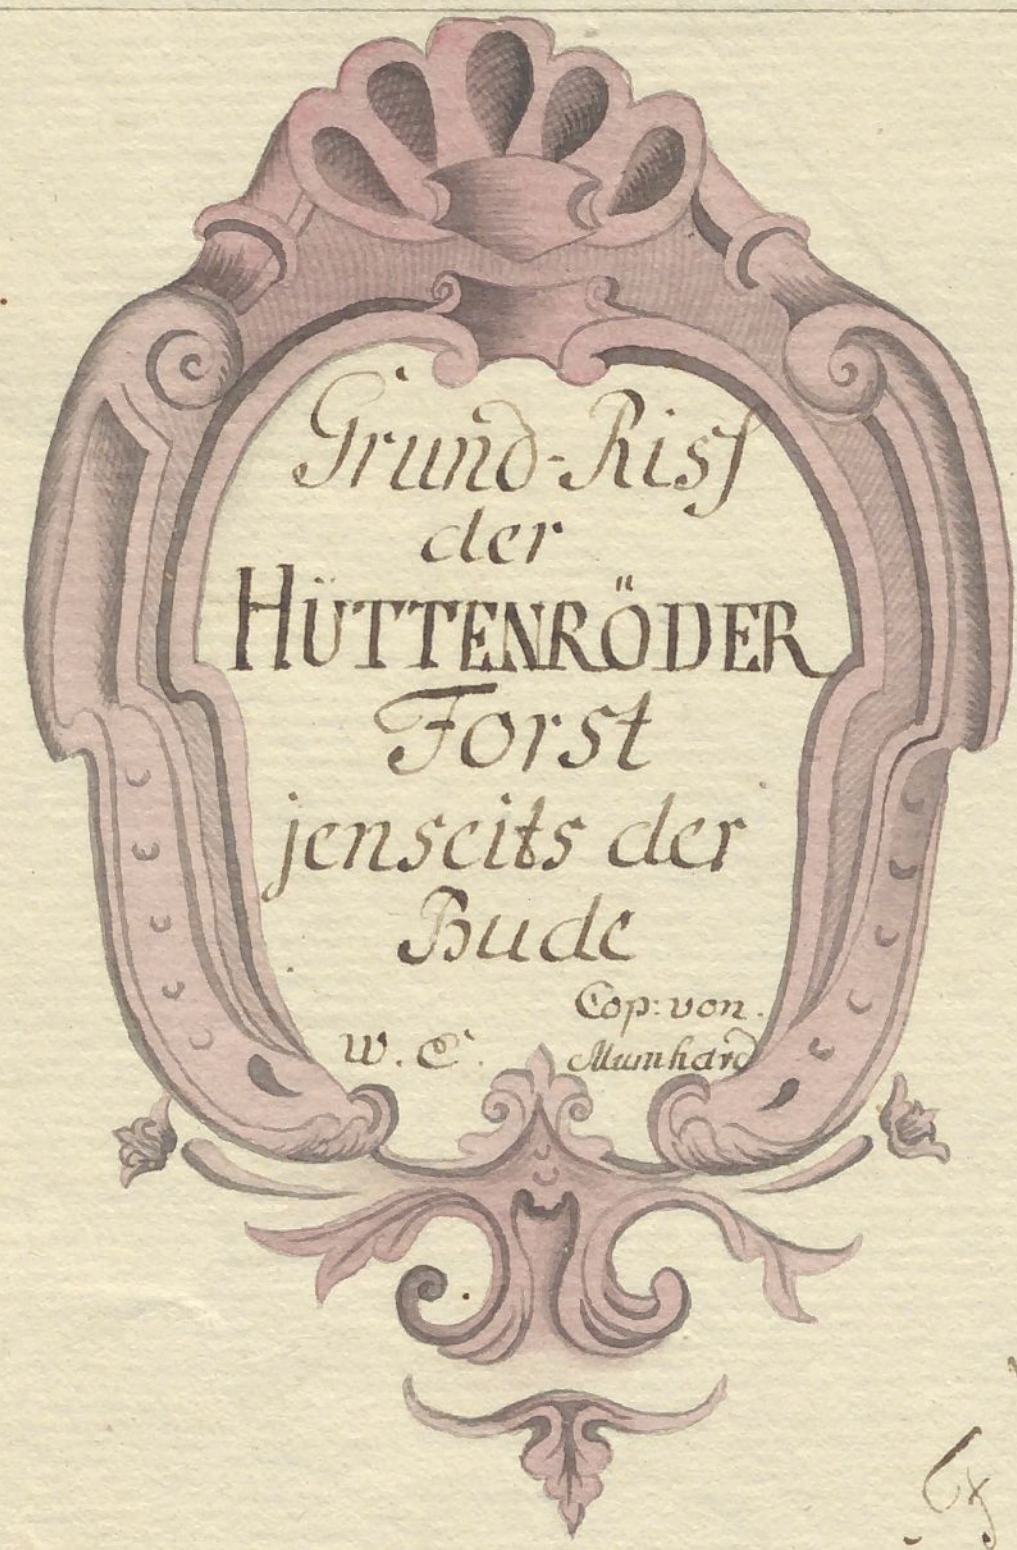 Grund-Riss
der
HÜTTENRÖDER
Forst
jenseits der
Bude
Cop: von.
W. C. Mumhard